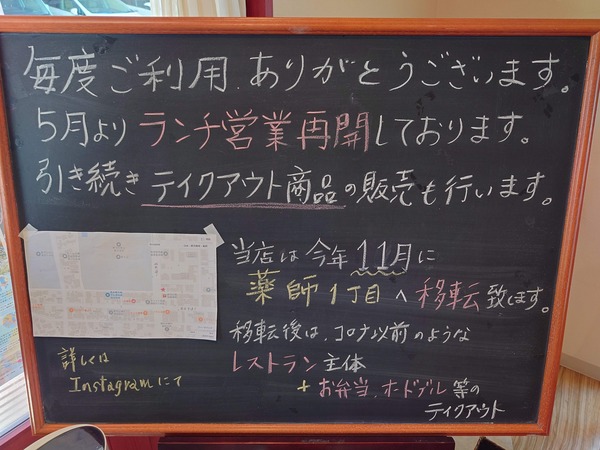 毎度ご利用、ありがとうございます。
5月より ランチ営業再開しております。
引き続き テイクアウト商品の販売も行います。
当店は今年11月に
薬師1丁目へ移転致します。
移転後は、コロナ以前のような
レストラン主体
+お弁当、オードブル等の
テイクアウト
詳しくは
Instagramにて